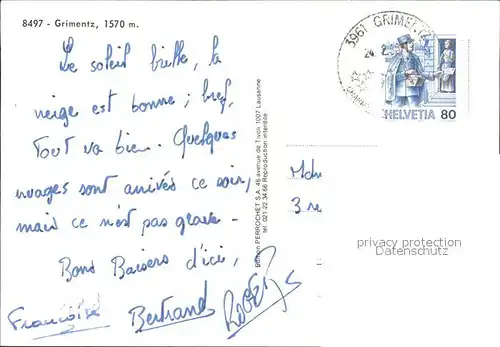 8497 - Grimentz, 1570 m.
Le soleil brille, la
neige est bonne ; bref,
Tout va bien. Quelques
nuages sont arrivés ce soir,
mais ce n'est pas grave -
Bons Baisers d'ici,
Françoise Bertrand
Edition PERROCHET S.A. 46 avenue de Tivoli 1007 Lausanne
tél. 021 22 34 66 Reproduction interdite
3961 GRIMENTZ
HELVETIA 80
3 r
privacy protection
Datenschutz